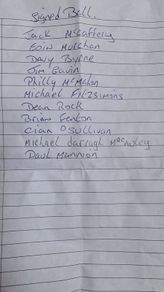 Signed Ball.
Jack McCaffery
Eoin Murchan
Davy Byrne
Jim Gavin
Philly McMahon
Michael Fitzsimons
Dean Rock
Brian Fenton
Cian O'Sullivan
Michael Darragh MacAuley
Paul Mannion